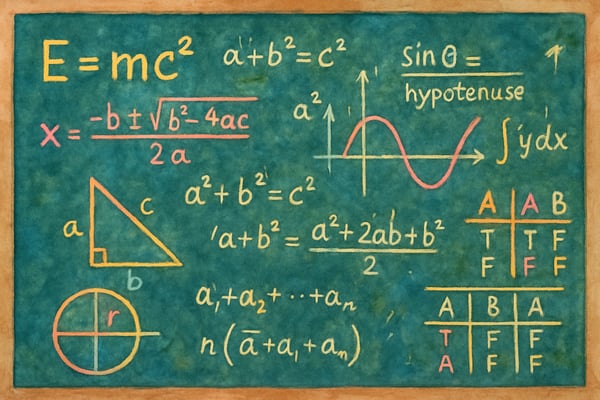 E = mc²
a + b² = c²
sin θ =
hypotenuse
x = -b ± √b² - 4ac
2a
a²
∫ y dx
a
c
b
a² + b² = c²
'a + b² = a² + 2ab + b²
2
A A B
T T F
F F F
r
a, + a₂ + ·· + aₙ
n(a̅ + a, + aₘ)
A B A
T F F
A F F